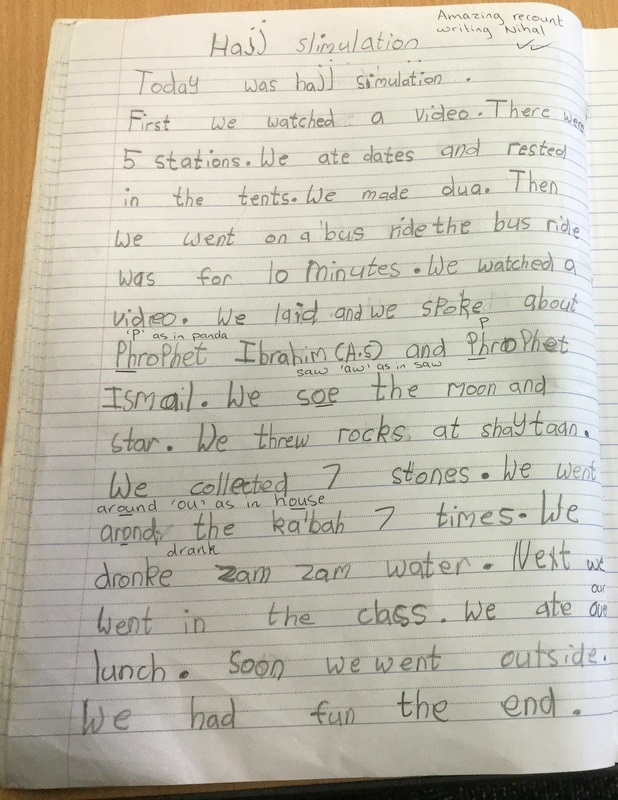 Amazing recount
writing Nihal
Hajj slimulation
Today was hajj simulation.
First we watched a video. There were
5 stations. We ate dates and rested
in the tents. We made dua. Then
We went on a bus ride the bus ride
was for 10 minutes. We watched a
video. We laid and we spoke about
'p' as in panda
P
Phrophet Ibrahim (A.S) and Phrophet
saw 'aw' as in saw
Ismail. We soe the moon and
star. We threw rocks at shaytaan.
We collected 7 stones. We went
around 'ou' as in house
arond the ka'bah 7 times. We
drank
dronke zam zam water. Next we
our
went in the class. We ate oue
lunch. Soon we went outside.
We had fun the end.